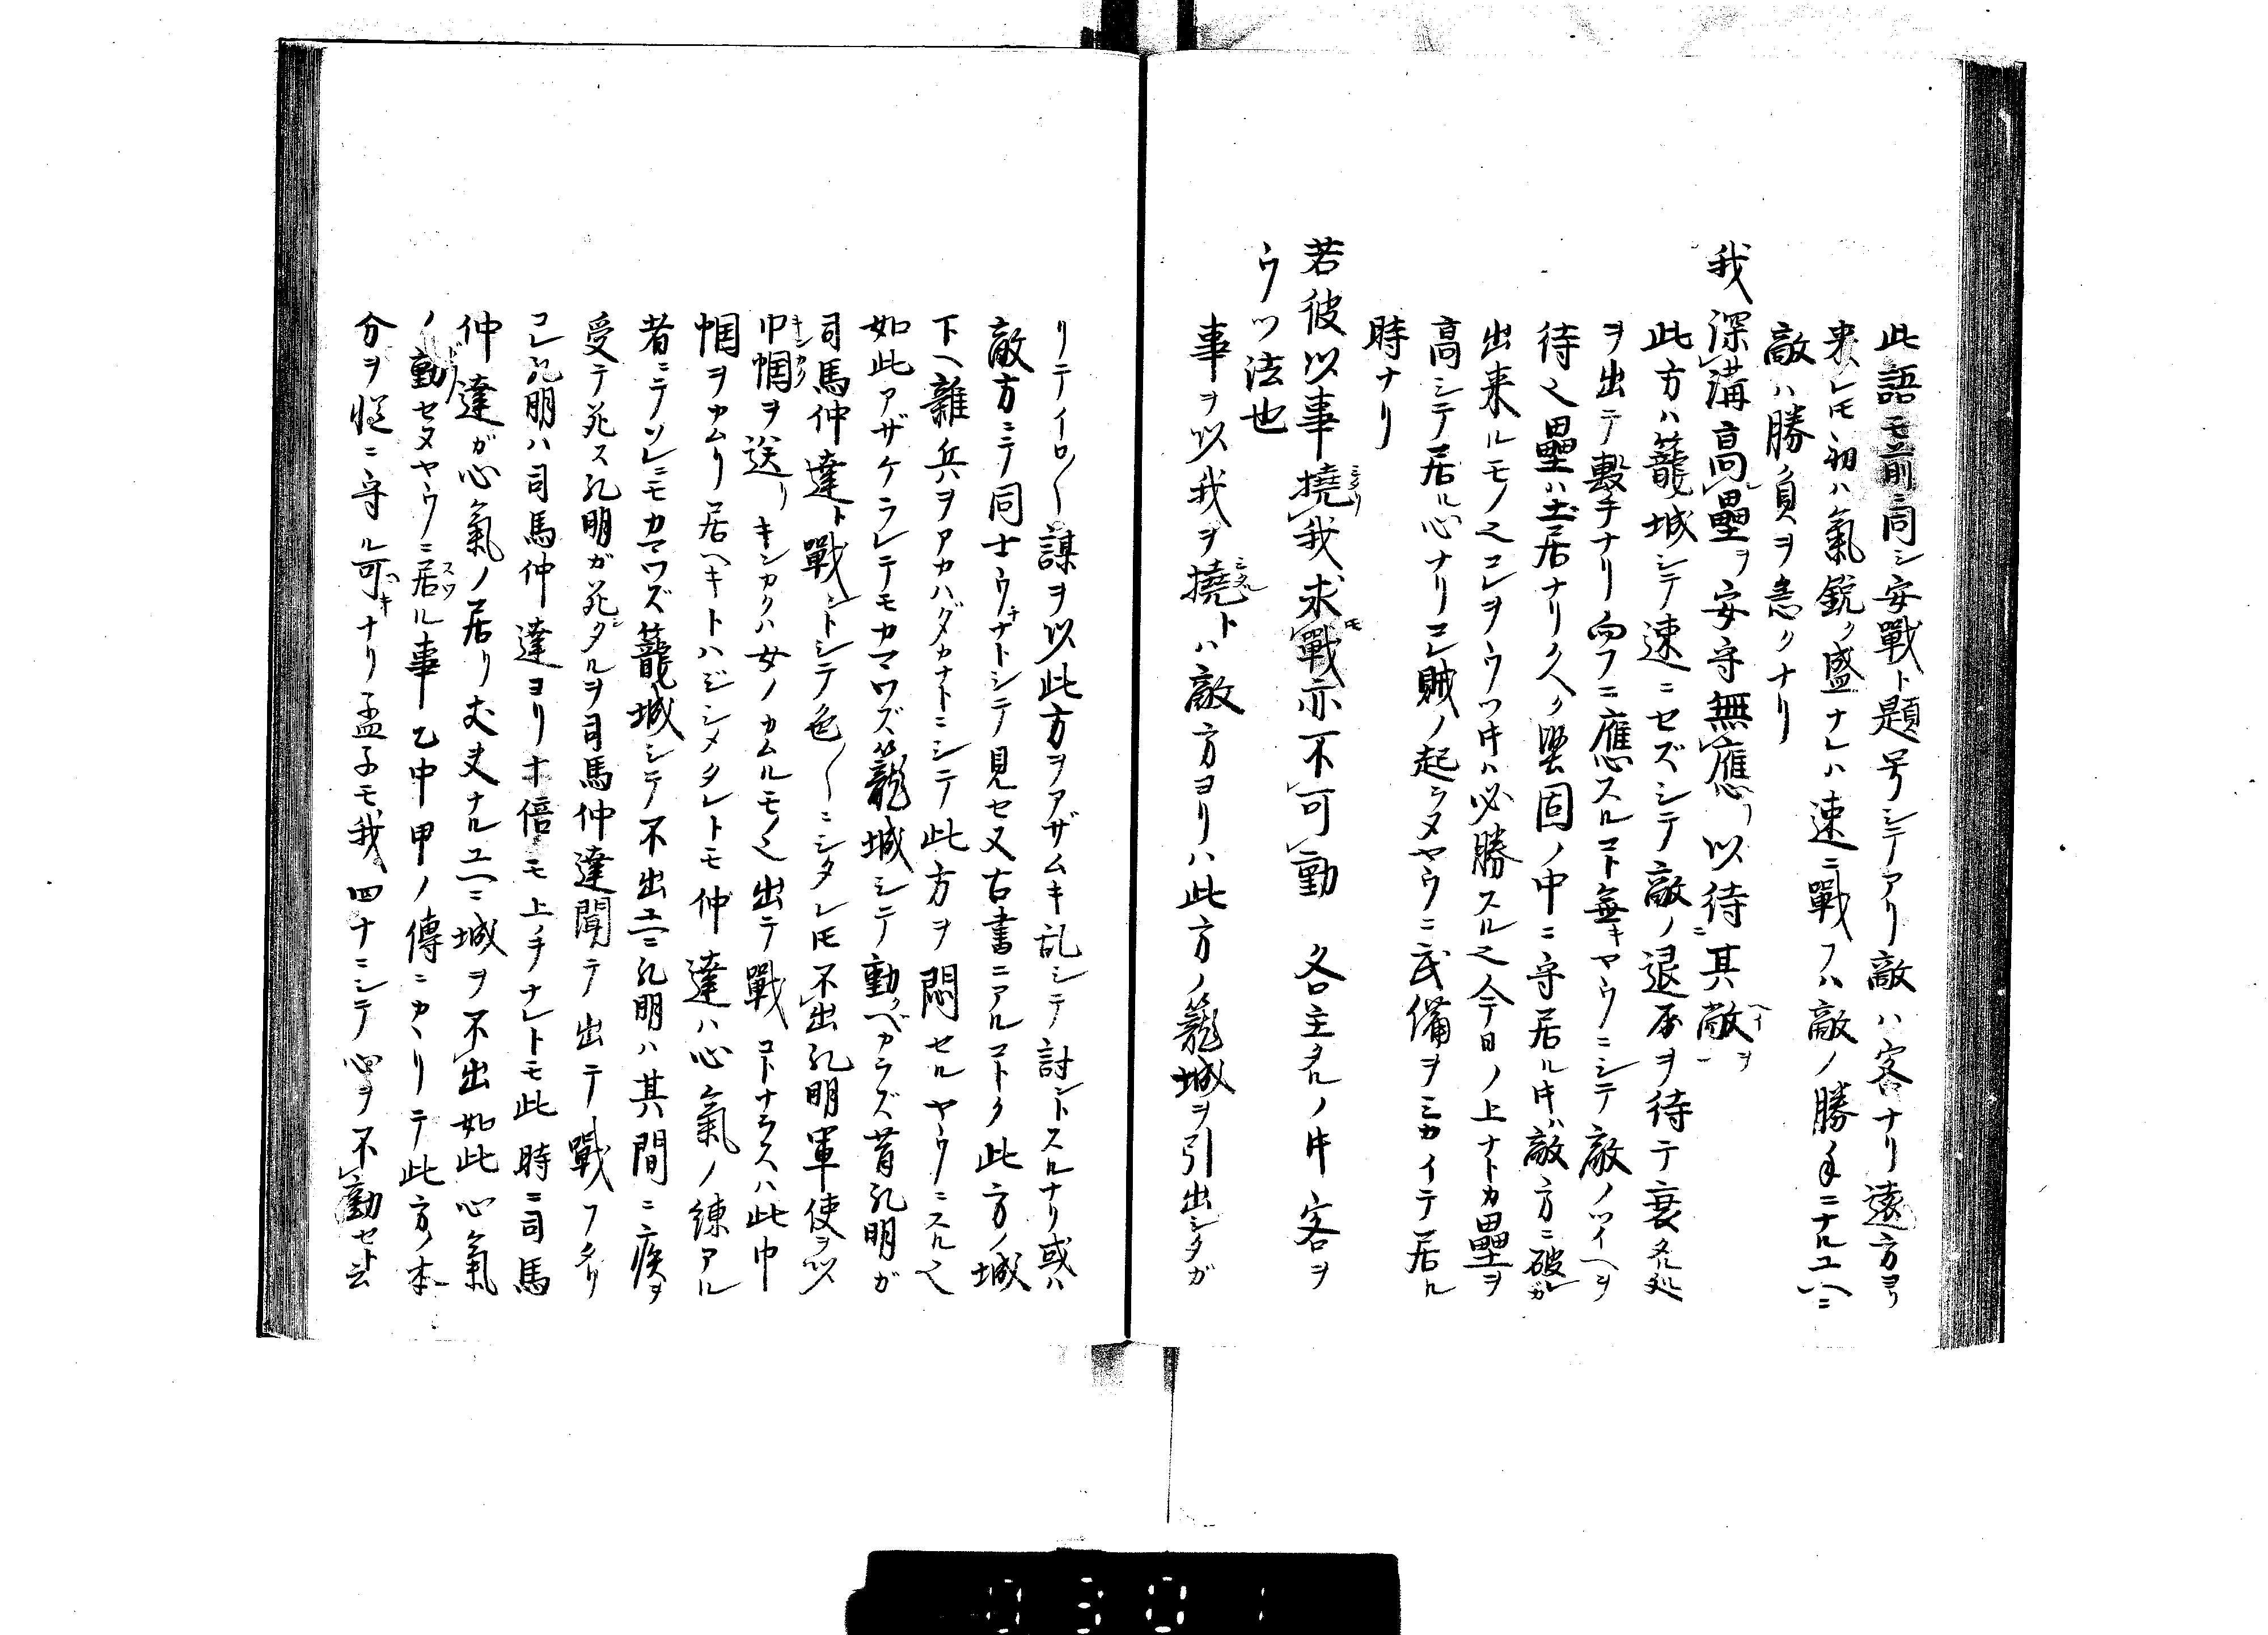 此語モ前ニ同シ安戰ト題号シテアリ敵ハ客ナリ遠方ヨリ
来レ𪜈初ハ氣鋭ク盛ナレハ速ニ戰フハ敵ノ勝手ニナルユヘニ
敵ハ勝負ヲ急クナリ
我深溝高壘ヲ安守無應以待其敵ヲ
此方ハ籠城シテ速ニセズシテ敵ノ退屈ヲ待テ衰タル処
ヲ出テ毄手ナリ向フニ應スルヿ無キヤウニシテ敵ノツイヘヲ
待也壘ハ土居ナリ久ク堅固ノ中ニ守居ル时ハ敵方ニ破レガ
出来ルモノ也コレヲウツ时ハ必勝スル也今日ノ上ナトカ壘ヲ
高シテ居ル心ナリコレ賊ノ起ラヌヤウニ武備ヲミカイテ居ル
時ナリ
若彼以事撓我求戰亦不可動 各主タルノ时客ヲ
ウツ法也
事ヲ以我ヲ撓トハ敵方ヨリハ此方ノ籠城ヲ引出シタガ
リテイロ〱謀ヲ以此方ヲアザムキ乱シテ討ントスルナリ或ハ
敵方ニテ同士ウチナトシテ見セ又古書ニアルコトク此方ノ城
下ヘ雜兵ヲアカハダカナトニシテ此方ヲ悶セルヤウニスル也
如此アザケラレテモカマワズ籠城シテ動クベカラズ昔孔明ガ
司馬仲達ト戰ントシテ色〱ニシタレ𪜈不出孔明軍使ヲ以
巾幗ヲ送リキンカクハ女ノカムルモノ也出テ戰コトナラスハ此巾
幗ヲカムリ居ヘキトハジシメタレトモ仲達ハ心氣ノ練アル
者ニテソレニモカマワズ籠城シテ不出ユヘニ孔明ハ其間ニ疾ヲ
受テ死ス孔明ガ死タルヲ司馬仲達聞テ出テ戰フタリ
コレ孔明ハ司馬仲達ヨリ十倍モ上手ナレトモ此時ニ司馬
仲達ガ心氣ノ居リ丈夫ナルユヘニ城ヲ不出如此心氣
ノ動セヌヤウニ居ル事乙中甲ノ傳ニカヽリテ此方ノ本
分ヲ慥ニ守ル可ナリ孟子モ我四十ニシテ心ヲ不動セト云